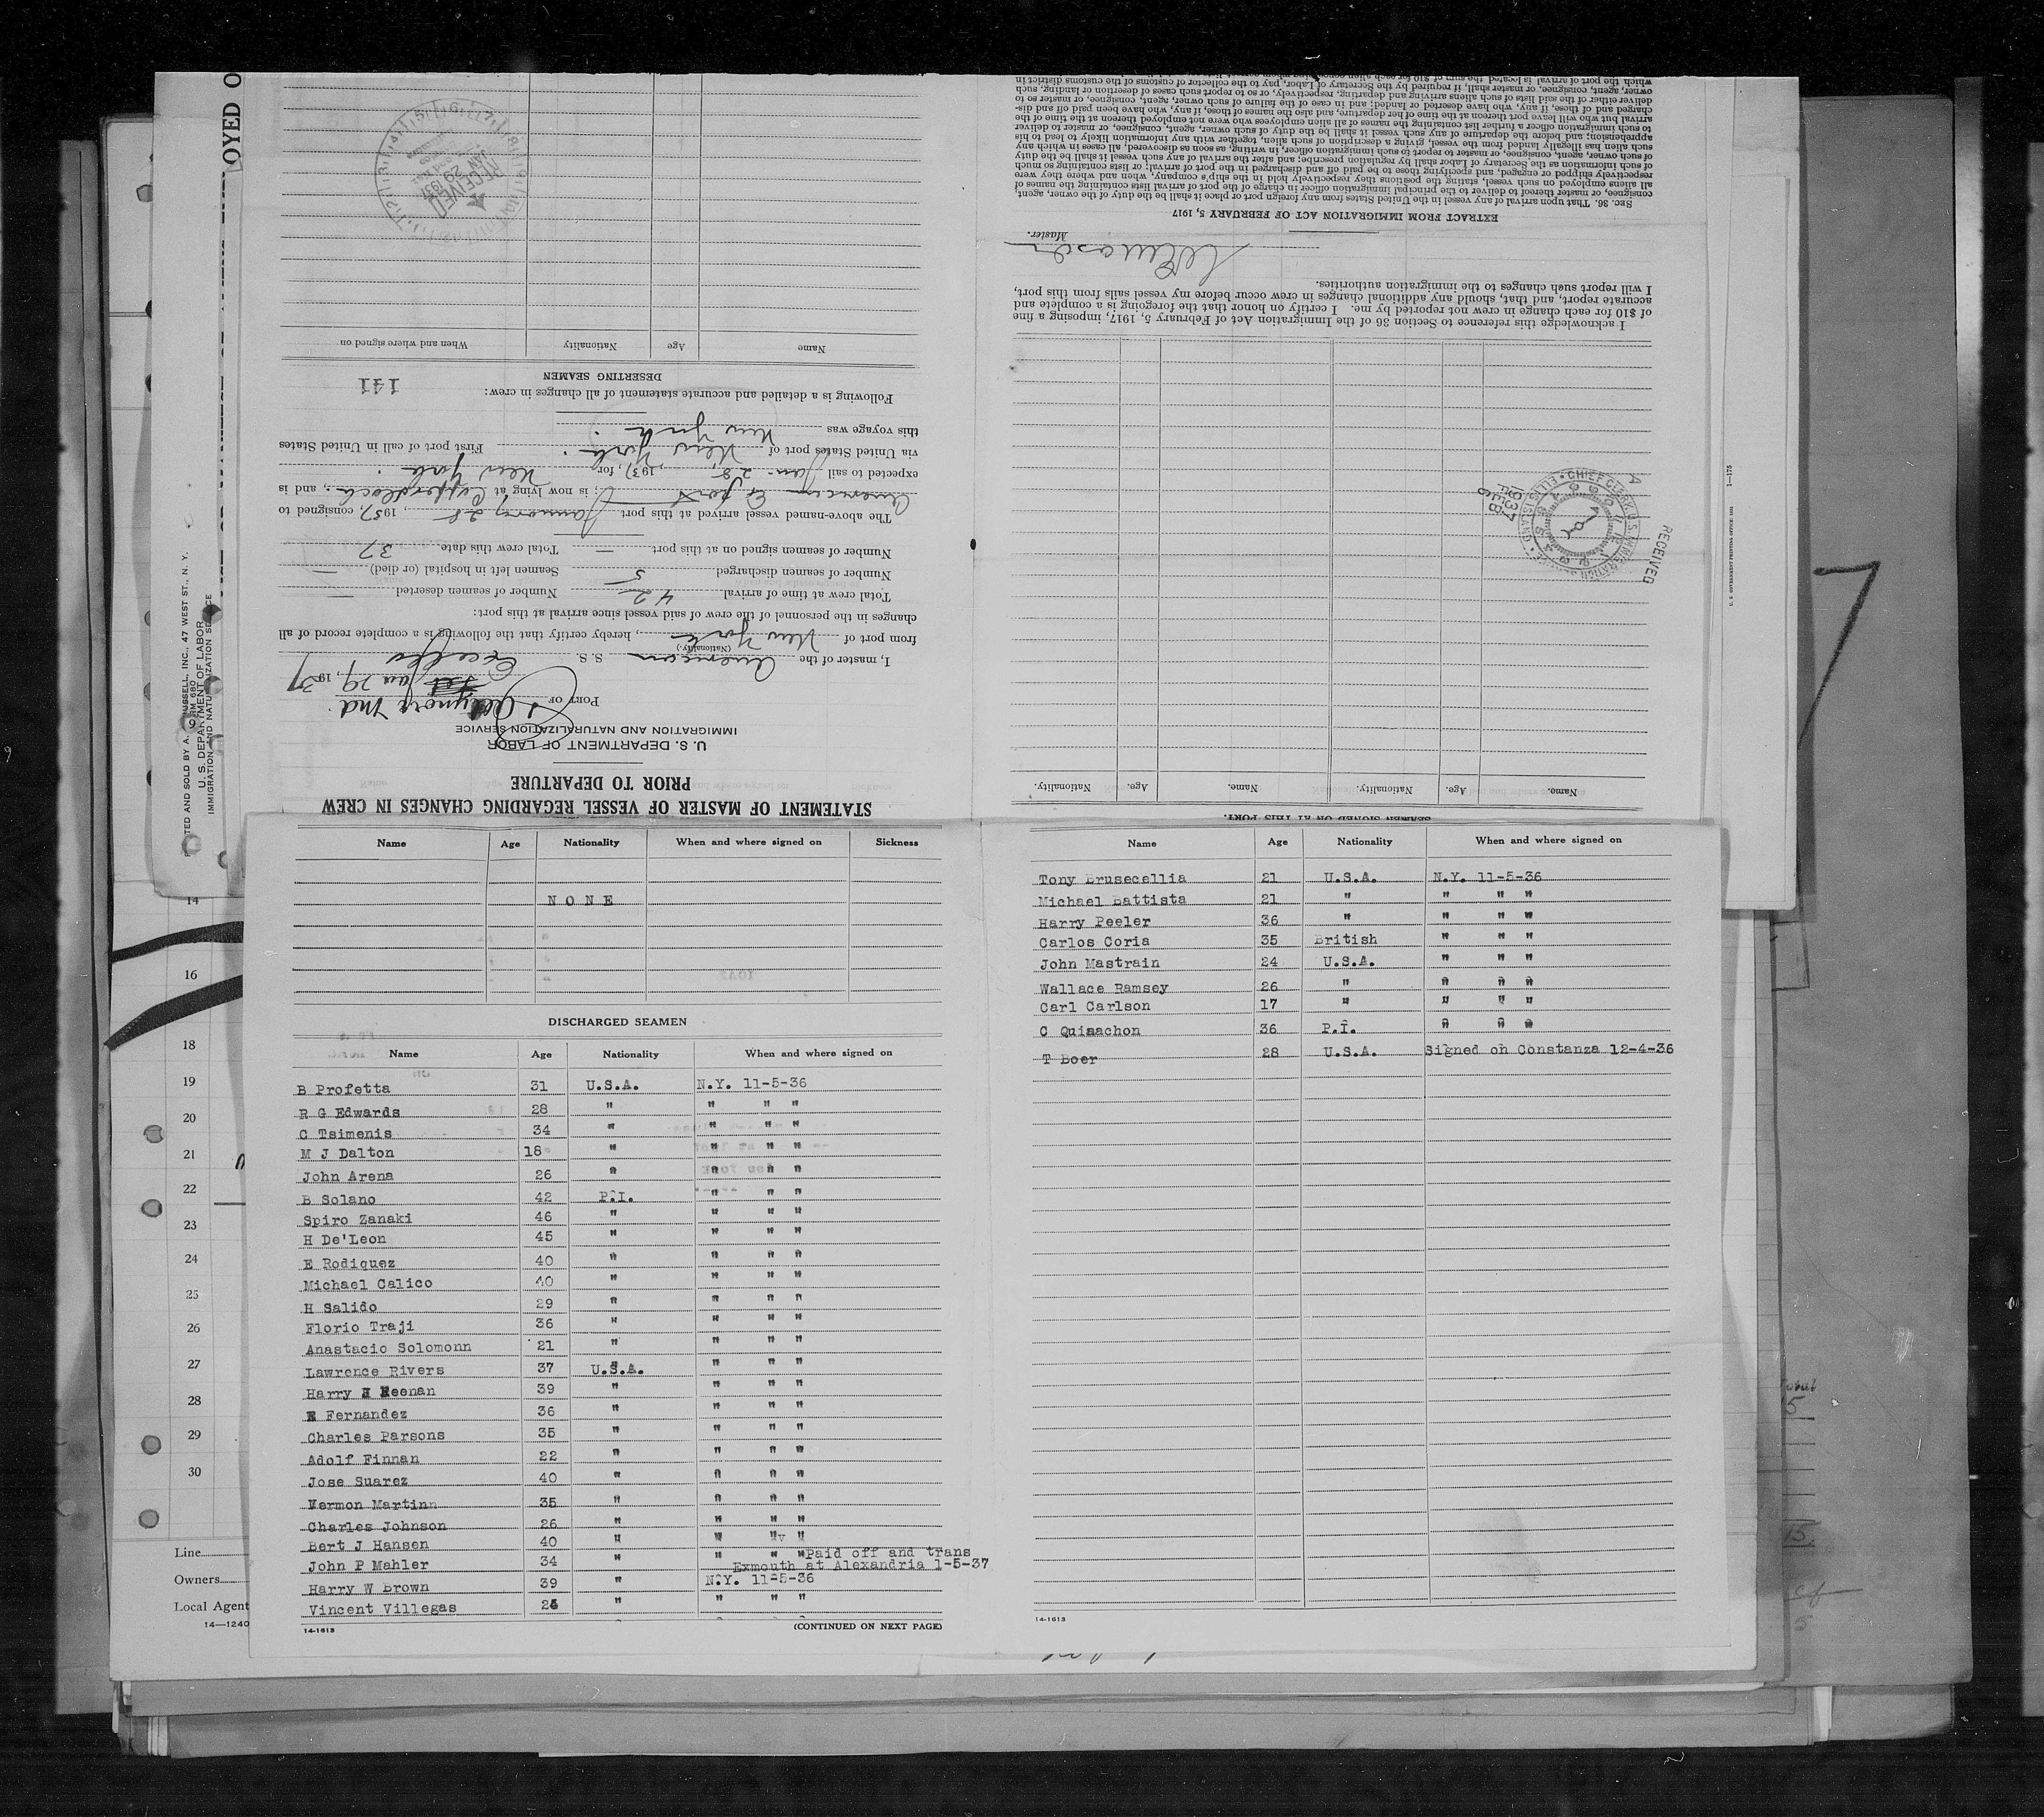 OYED O
TED AND SOLD BY A. RUSSELL, INC., 47 WEST ST., N. Y.
U. S. DEPARTMENT OF LABOR
IMMIGRATION AND NATURALIZATION SERVICE
STATEMENT OF MASTER OF VESSEL REGARDING CHANGES IN CREW
PRIOR TO DEPARTURE
U. S. DEPARTMENT OF LABOR
IMMIGRATION AND NATURALIZATION SERVICE
PORT OF Md. Jan 29, 1937
I, master of the American S. S. Excello
(Nationality.)
from port of New York, hereby certify that the following is a complete record of all
changes in the personnel of the crew of said vessel since arrival at this port:
Total crew at time of arrival 42 Number of seamen deserted —
Number of seamen discharged 5 Seamen left in hospital (or died) —
Number of seamen signed on at this port — Total crew this date 37
The above-named vessel arrived at this port January 28, 1937, consigned to
American Export, is now lying at, and is
expected to sail Jan. 28, 1937, for New York
via United States port of New York. First port of call in United States
this voyage was New York.
Following is a detailed and accurate statement of all changes in crew:
141
DESERTING SEAMEN
Name Age Nationality When and where signed on
RECEIVED
JAN 29 1937
SEAMEN SIGNED ON AT THIS PORT.
Name. Age. Nationality. Name. Age. Nationality.
I acknowledge this reference to Section 36 of the Immigration Act of February 5, 1917, imposing a fine
of $10 for each change in crew not reported by me. I certify on honor that the foregoing is a complete and
accurate report, and that, should any additional changes in crew occur before my vessel sails from this port,
I will report such changes to the immigration authorities.
Master.
EXTRACT FROM IMMIGRATION ACT OF FEBRUARY 5, 1917
SEC. 36. That upon arrival of any vessel in the United States from any foreign port or place it shall be the duty of the owner, agent,
consignee, or master thereof to deliver to the principal immigration officer in charge of the port of arrival lists containing the names of
all aliens employed on such vessel, stating the positions they respectively hold in the ship's company, when and where they were
respectively shipped or engaged, and specifying those to be paid off and discharged in the port of arrival; or lists containing so much
of such information as the Secretary of Labor shall by regulation prescribe; and after the arrival of any such vessel it shall be the duty
of such owner, agent, consignee, or master to report to such immigration officer, in writing, as soon as discovered, all cases in which any
such alien has illegally landed from the vessel, giving a description of such alien, together with any information likely to lead to his
apprehension; and before the departure of any such vessel it shall be the duty of such owner, agent, consignee, or master to deliver
to such immigration officer a further list containing the names of all alien employees who were not employed thereon at the time of the
arrival but who will leave port thereon at the time of her departure, and also the names of those, if any, who have been paid off and dis-
charged and of those, if any, who have deserted or landed; and in case of the failure of such owner, agent, consignee, or master so to
deliver either of the said lists of such aliens arriving and departing, respectively, or so to report such cases of desertion or landing, such
owner, agent, consignee, or master shall, if required by the Secretary of Labor, pay to the collector of customs of the customs district in
which the port of arrival is located the sum of $10 for each alien concerning whom
RECEIVED
CHIEF CLERK U.S. IMMIGRATION SERVICE ELLIS ISLAND
1937
U. S. GOVERNMENT PRINTING OFFICE: 1931
1—175
7
Name Age Nationality When and where signed on Sickness
N O N E
DISCHARGED SEAMEN
Name Age Nationality When and where signed on
B Profetta 31 U.S.A. N.Y. 11-5-36
R G Edwards 28 " " " "
C Tsimenis 34 " " " "
M J Dalton 18 " " " "
John Arena 26 " " " "
B Solano 42 P.I. " " "
Spiro Zanaki 46 " " " "
H De'Leon 45 " " " "
E Rodiquez 40 " " " "
Michael Calico 40 " " " "
H Salido 29 " " " "
Florio Traji 36 " " " "
Anastacio Solomonn 21 " " " "
Lawrence Rivers 37 U.S.A. " " "
Harry J Keenan 39 " " " "
E Fernandez 36 " " " "
Charles Parsons 35 " " " "
Adolf Finnan 22 " " " "
Jose Suarez 40 " " " "
Vermon Martinn 35 " " " "
Charles Johnson 26 " " " "
Bert J Hansen 40 " " " "
John P Mahler 34 " " " " Paid off and trans
Exmouth at Alexandria 1-5-37
Harry W Brown 39 " N.Y. 11-5-36
Vincent Villegas 24 " " " "
14-1613
(CONTINUED ON NEXT PAGE)
Name Age Nationality When and where signed on
Tony Brusecellia 21 U.S.A. N.Y. 11-5-36
Michael Battista 21 " " " "
Harry Peeler 36 " " " "
Carlos Coria 35 British " " "
John Mastrain 24 U.S.A. " " "
Wallace Ramsey 26 " " " "
Carl Carlson 17 " " " "
C Quimachon 36 P.I. " " "
T Boer 28 U.S.A. Signed on Constanza 12-4-36
14-1613
14
16
18
19
20
21
22
23
24
25
26
27
28
29
30
Line
Owners
Local Agent
14—1240
Total
15
15